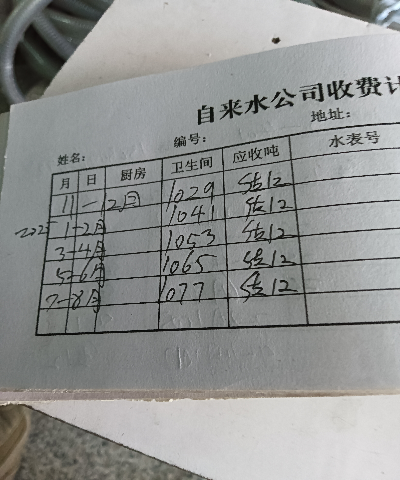 自来水公司收费
姓名： 编号： 地址：
月 日 厨房 卫生间 应收吨 水表号
11 — 12月 1029 估12
2025 1-2月 1041 估12
3-4月 1053 估12
5-6月 1065 估12
7-8月 1077 估12